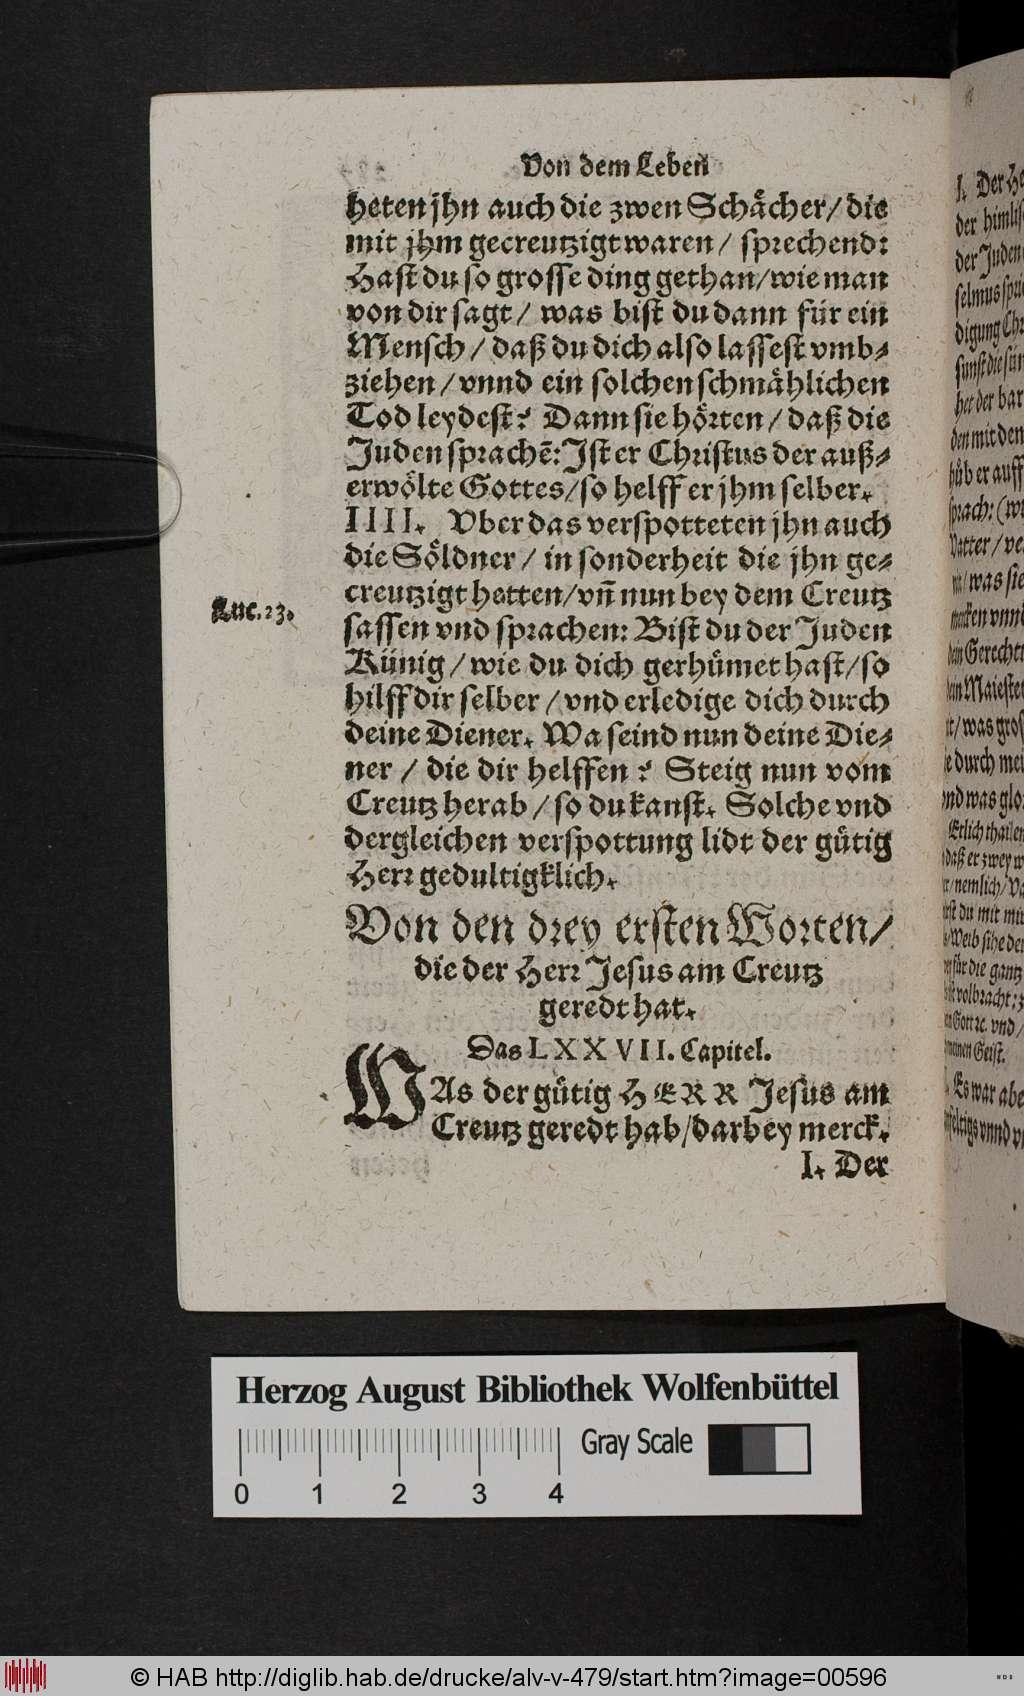 Von dem Leben
heten jhn auch die zwen Schächer/ die
mit jhm gecreutzigt waren/ sprechend:
Hast du so grosse ding gethan/ wie man
von dir sagt/ was bist du dann für ein
Mensch/ daß du dich also lassest vmb-
ziehen/ vnnd ein solchen schmählichen
Tod leydest? Dann sie hörten/ daß die
Juden sprachẽ: Ist er Christus der auß-
erwölte Gottes/ so helff er jhm selber.
IIII. Vber das verspotteten jhn auch
die Söldner/ in sonderheit die jhn ge-
creutzigt hetten/ vñ nun bey dem Creutz
Luc. 23.
sassen vnd sprachen: Bist du der Juden
Künig/ wie du dich gerhümet hast/ so
hilff dir selber/ vnd erledige dich durch
deine Diener. Wa seind nun deine Die-
ner/ die dir helffen? Steig nun vom
Creutz herab/ so du kanst. Solche vnd
dergleichen verspottung lidt der gütig
Herr gedultigklich.
Von den drey ersten Worten/
die der Herr Jesus am Creutz
geredt hat.
Das LXXVII. Capitel.
WAs der gütig HERR Jesus am
Creutz geredt hab/ darbey merck.
I. Der
I. Der
der himli
der Juden
selmus
digung
het der bar
den mit den
hüb er auff
sprach: (w
Vatter/ ve
was sie
dein Gerecht
dein Maiestet
was gros
durch mei
vnd was glo
Etlich thailen
daß er zwey w
nemlich/ Va
du mit mir
Weib sihe der
für die gantz
volbracht: z
Gott ꝛc. vnd/
meinen Geist.
Es war abe
Herzog August Bibliothek Wolfenbüttel
Gray Scale
0 1 2 3 4
© HAB http://diglib.hab.de/drucke/alv-v-479/start.htm?image=00596